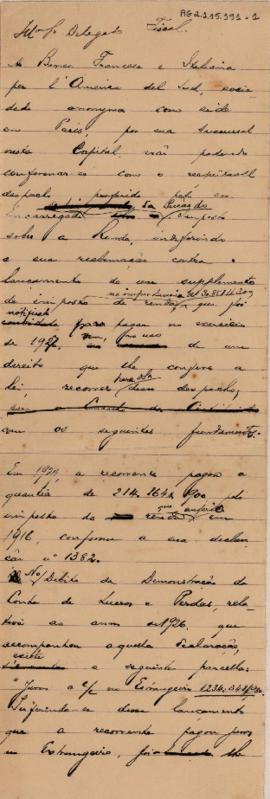 AG2.1.15.391-1
Illmo Sr Delegado Fiscal.
A Banca Francese e Italiana
per l'America del Sud, socie-
dade anonyma com séde
em Paris, por sua succursal
nesta Capital, não podendo
conformar-se com o respeitavel
despacho proferido pelo sr.
encarregado da Secção do Imposto
sobre a Renda, indeferindo
a sua reclamação contra o
lançamento de um supplemento
de imposto de renda, na importancia de que foi
notificada para pagar no exercicio
de 1927, vem, no uso de um
direito que lhe confere a
lei, recorrer desse despacho,
com os seguintes fundamentos:
Em 1927, a recorrente pagou a
quantia de 214:264$900 pelo
imposto de renda em
1926, conforme a sua declara-
ção nº 1382.
No Debito da Demonstração da
Conta de Lucros e Perdas, rela-
tiva ao anno de 1926, que
acompanhou aquella declaração,
existe a seguinte parcella:
"Juros a c/c no Extrangeiro
Inferindo-se desse lançamento
que a recorrente pagou juros
no Extrangeiro, foi lhe